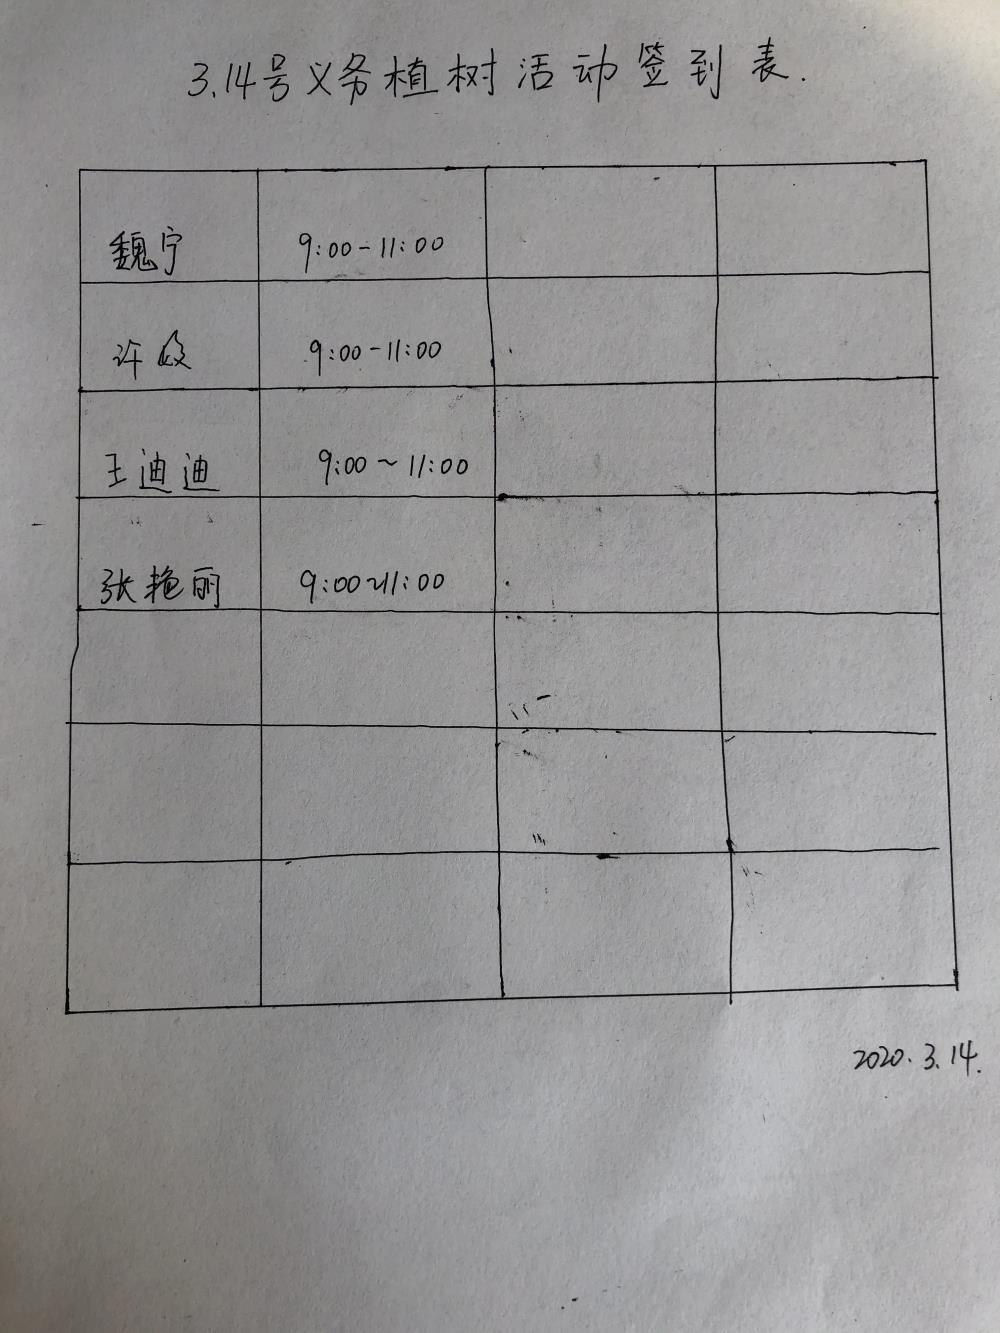 3.14号义务植树活动签到表.
魏宁 9:00-11:00
许 9:00-11:00
王迪迪 9:00~11:00
张艳丽 9:00~11:00
2020.3.14.